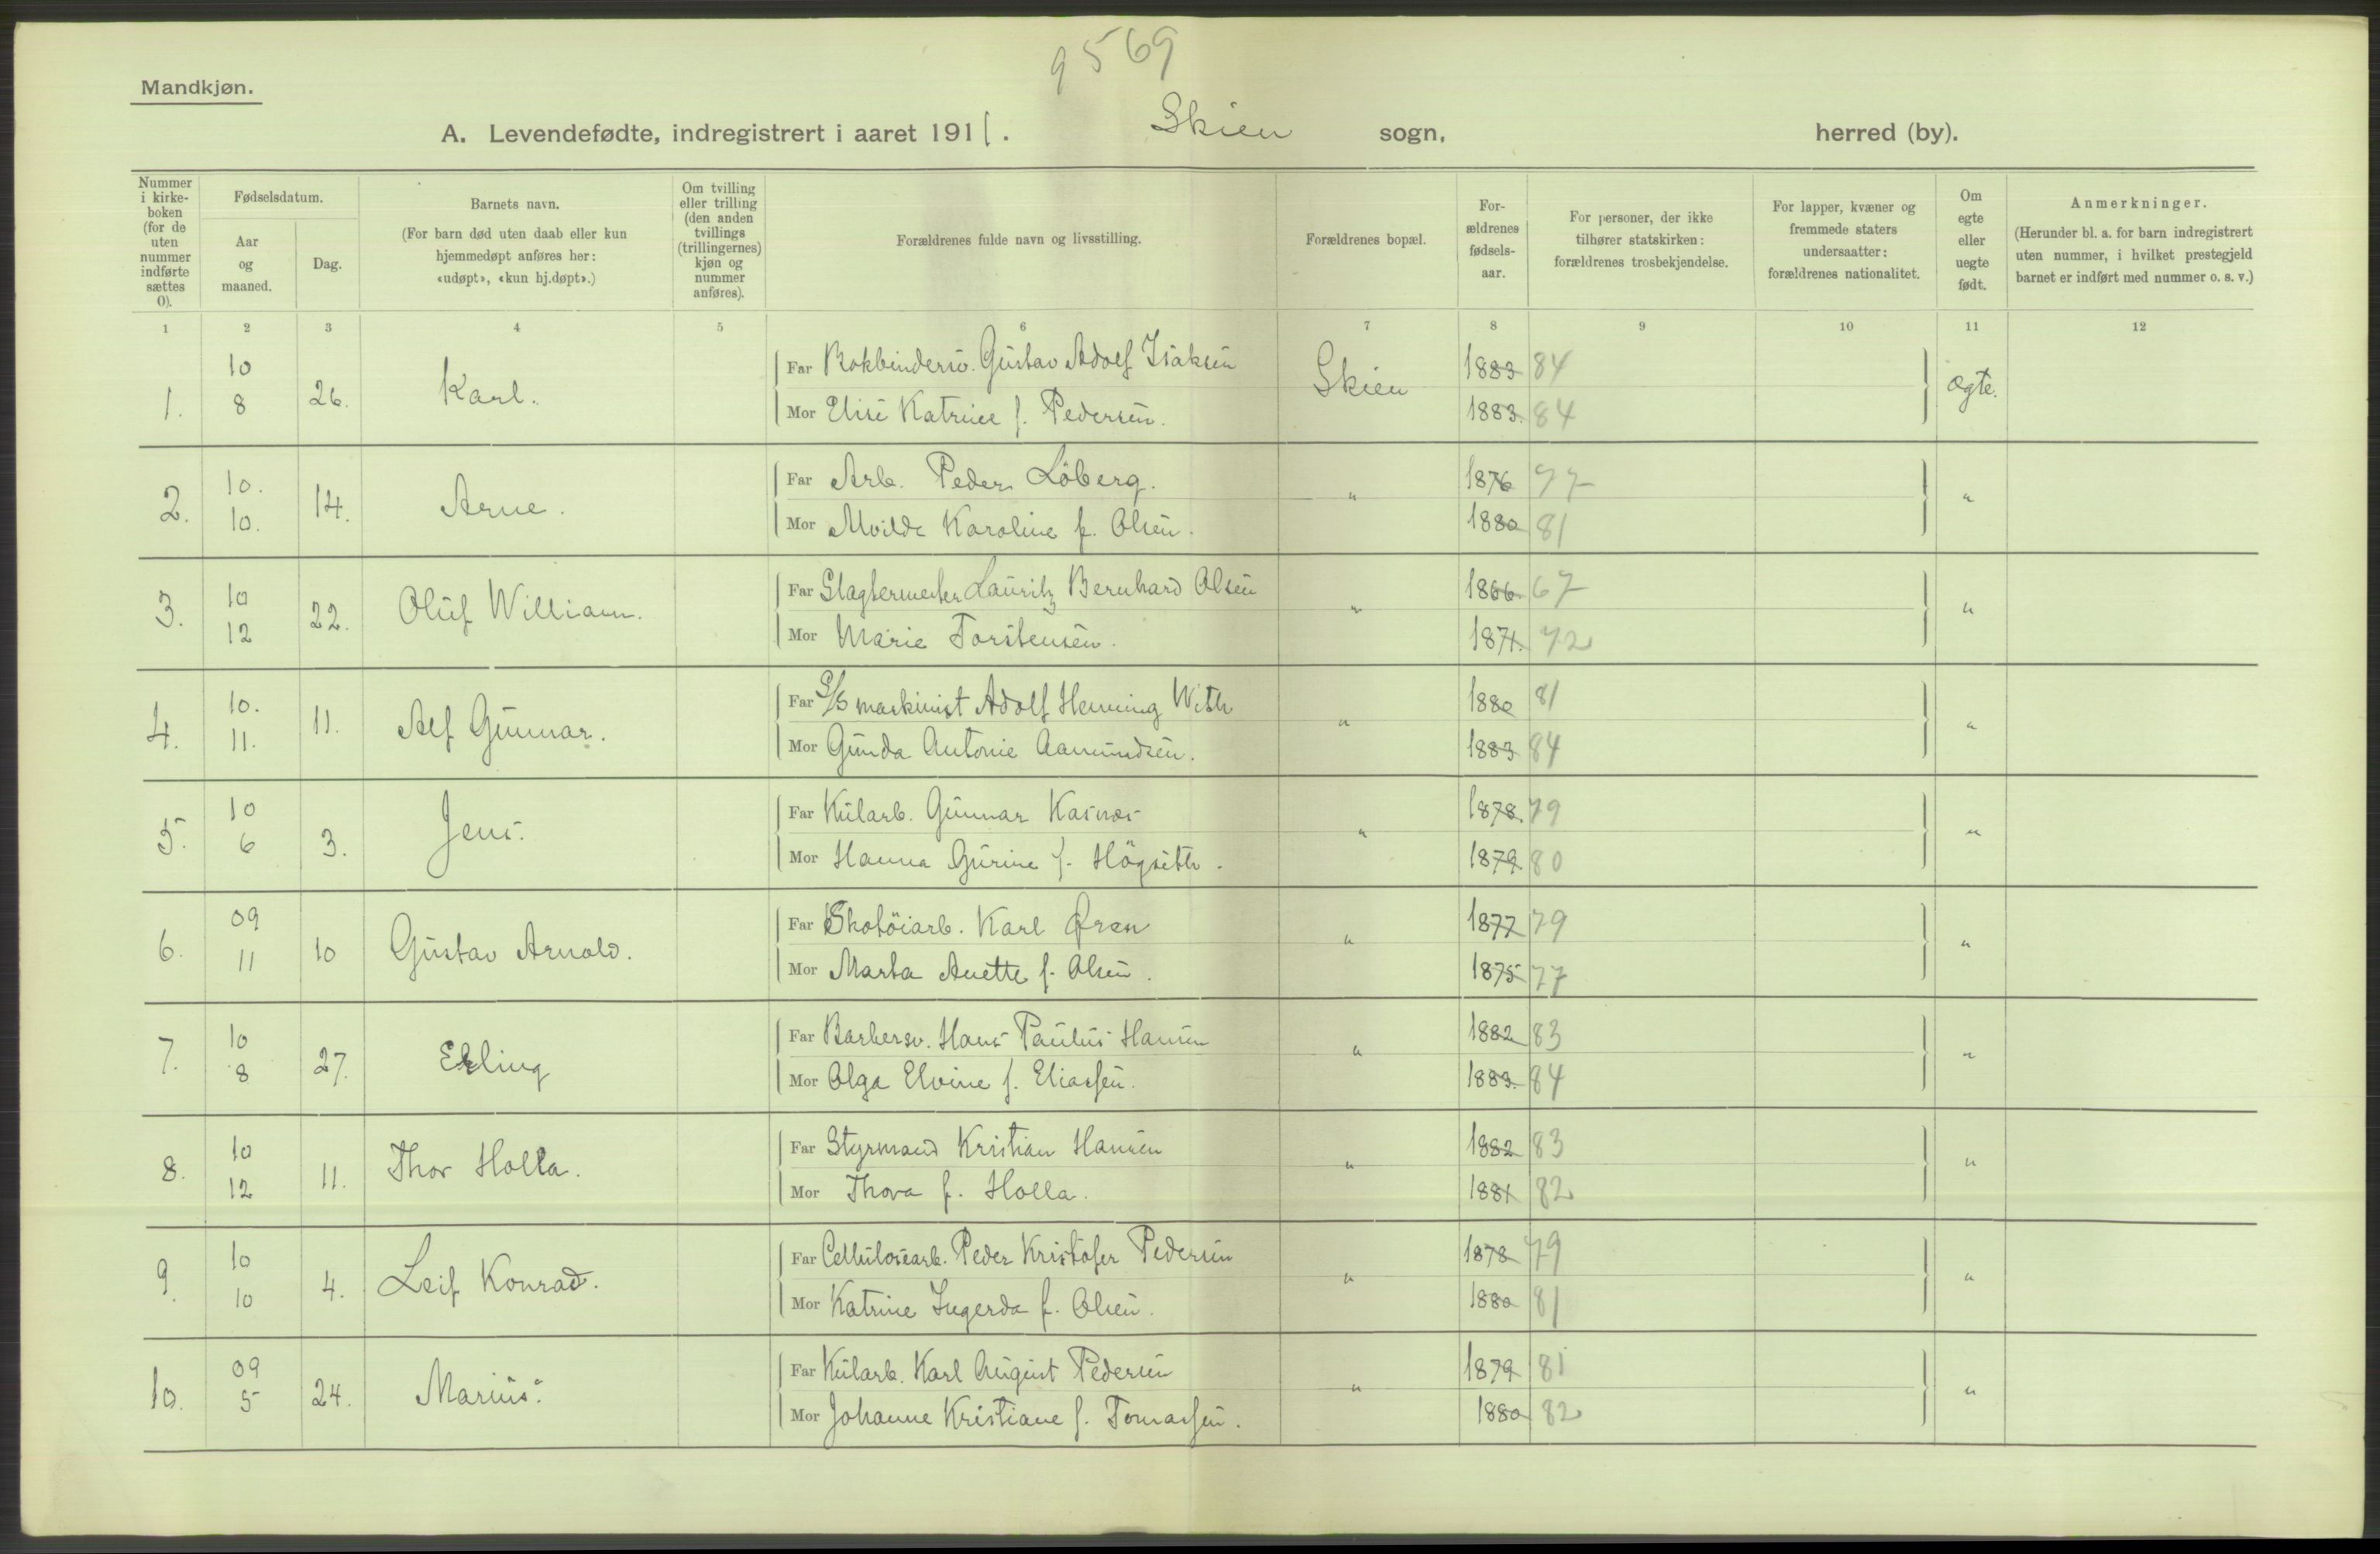 9569
Mandkjøn.
A. Levendefødte, indregistrert i aaret 1911. Skien sogn, herred (by).
Nummer i kirke-boken (for de uten nummer indførte sættes 0).
Fødselsdatum.
Aar og maaned.
Dag.
Barnets navn.
(For barn død uten daab eller kun hjemmedøpt anføres her: «udøpt», «kun hj.døpt».)
Om tvilling eller trilling (den anden tvillings (trillingernes) kjøn og nummer anføres).
Forældrenes fulde navn og livsstilling.
Forældrenes bopæl.
For-ældrenes fødsels-aar.
For personer, der ikke tilhører statskirken: forældrenes trosbekjendelse.
For lapper, kvæner og fremmede staters undersaatter: forældrenes nationalitet.
Om egte eller uegte født.
Anmerkninger.
(Herunder bl. a. for barn indregistrert uten nummer, i hvilket prestegjeld barnet er indført med nummer o. s. v.)
1 2 3 4 5 6 7 8 9 10 11 12
1. 10 8 26. Karl.
Far Bokbindersv. Gustav Adolf Isaksen Skien 1883 84 ægte.
Mor Elise Katrine f. Pedersen. 1883. 84
2. 10. 10. 14. Arne.
Far Arb. Peder Löberg. " 1876 77 "
Mor Mvilde Karoline f. Olsen. 1880 81
3. 10 12 22. Oluf William.
Far Slagtermester Lauritz Bernhard Olsen " 1866. 67 "
Mor Marie Torstensen. 1871. 72
4. 10. 11. 11. Alf Gunnar.
Far S/S maskinist Adolf Henning With " 1880 81 "
Mor Gunda Antonie Aamundsen. 1883 84
5. 10 6 3. Jens.
Far Kularb. Gunnar Kasnæs " 1878. 79 "
Mor Hanna Gurine f. Högseth. 1879 80
6. 09 11 10 Gustav Arnold.
Far Skotöiarb. Karl Øren " 1877 79 "
Mor Marta Anette f. Olsen. 1875 77
7. 10 8 27. Erling
Far Barbersv. Hans Paulus Hansen " 1882 83 "
Mor Olga Elvine f. Eliassen. 1883. 84
8. 10 12 11. Thor Holla.
Far Styrmand Kristian Hansen " 1882 83 "
Mor Thora f. Holla. 1881 82
9. 10 10 4. Leif Konrad.
Far Cellulosearb. Peder Kristofer Pedersen " 1878 79 "
Mor Katrine Ingerda f. Olsen. 1880 81
10. 09 5 24. Marius.
Far Kularb. Karl August Pedersen " 1879 81 "
Mor Johanne Kristiane f. Tomassen. 1880 82